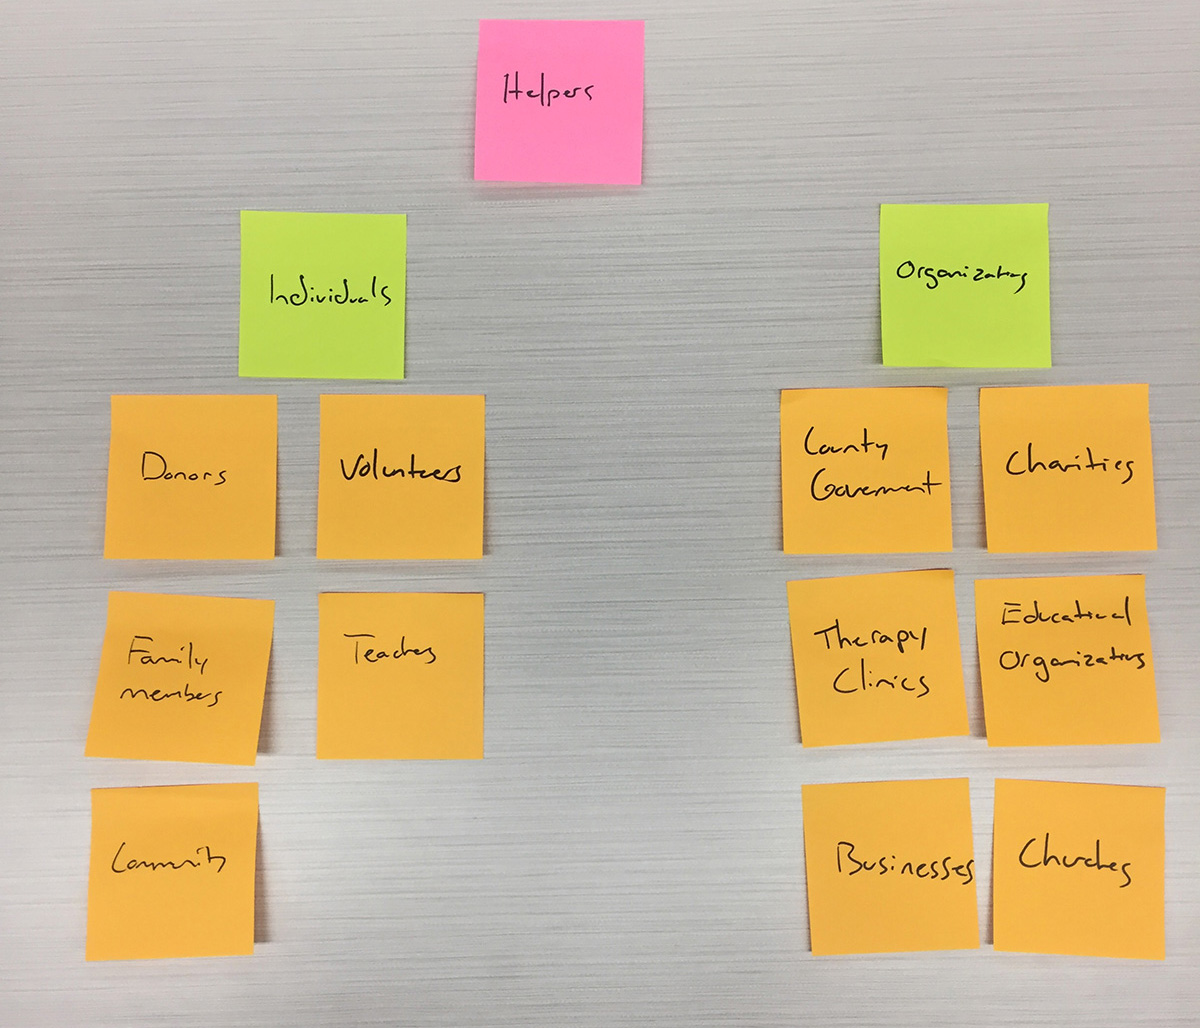 Helpers
Individuals
Organizations
Donors
Volunteers
Family
members
Teachers
Community
County
Government
Charities
Therapy
Clinics
Educational
Organizations
Businesses
Churches